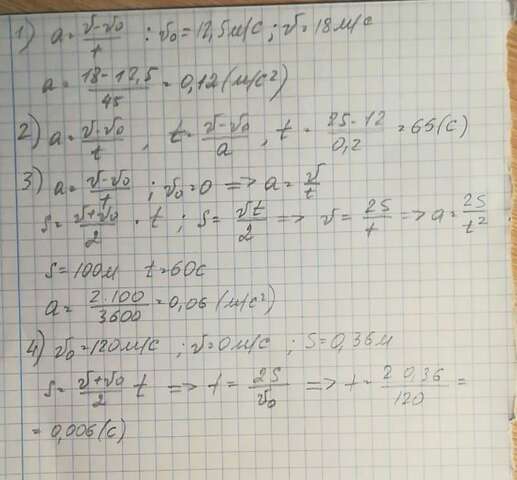 1) a = (v-v₀)/t : v₀ = 12,5м/с ; v = 18м/с
a = (18-12,5)/45 = 0,12 (м/с²)
2) a = (v-v₀)/t , t = (v-v₀)/a , t = (25-12)/0,2 = 65(с)
3) a = (v-v₀)/t ; v₀ = 0 => a = v/t
s = (v+v₀)/2 · t ; s = vt/2 => v = 2s/t => a = 2s/t²
s = 100м t = 60с
a = 2·100/3600 = 0,06 (м/с²)
4) v₀ = 120м/с ; v = 0м/с ; s = 0,36м
s = (v+v₀)/2 t => t = 2s/v₀ => t = 2 0,36/120 =
= 0,006(с)